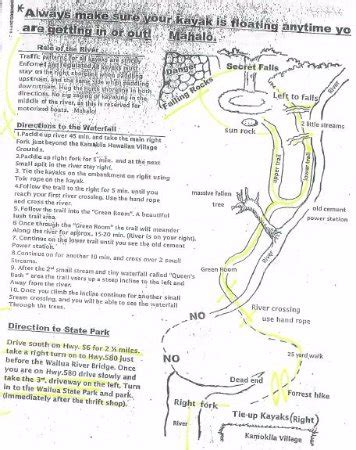 *Always make sure your kayak is floating anytime yo
are getting in or out! Mahalo.
Rule of the River
Traffic patterns for all kayaks are strictly
stay on the right shoreline when paddling
upstream, and the same side when paddling
downstream. Hug the
directions. No zig zagging or kayaking in the
middle of the river, as this is reserved for
motorized boats. Mahalo!
Directions to the Waterfall
1.Paddle up river 45 min. and take the main right
Fork just beyond the Kamokila Hawaiian Village
Grounds.
2.Paddle up right fork for 5 min. and at the next
Small split in the river stay right.
3. Tie the kayaks on the embankment on right using
Tok rope on the kayak.
4.Follow the trail to the right for 5 min. until you
reach your first river crossing. Use the hand rope
and cross the river.
5. Follow the trail into the "Green Room". A beautiful
lush trail area.
6 Once through the "Green Room" the trail will meander
Along the river for approx. 15-20 min. (River is on your right).
7. Continue on the lower trail until you see the old cement
Power station.
8.Continue on for another 10 min. and cross over 2 small
Streams.
9. After the 2nd small stream and tiny waterfall called "Queen's
Bath" area the trail veers up a steep incline to the left and
Away from the river.
10. Once you climb the incline continue for another small
Stream crossing, and you will be able to see the waterfall
Through the trees.
Direction to State Park
Drive south on Hwy. 56 for 2 ½ miles.
take a right turn on to Hwy.580 just
before the Wailua River Bridge. Once
you are on Hwy.580 drive slowly and
take the 3rd. driveway on the left. Turn
in to the Wailua State Park and park.
(immediately after the thrift shop).
Danger
Falling Rocks
Secret Falls
Left to falls
2 little streams
sun rock
upper trail
lower trail
massive fallen
tree
old cement
power station
Green Room
River
River crossing
use hand rope
NO
NO
25 yard walk
Dead end
Forrest hike
Right fork
Tie-up Kayaks(Right)
River
Kamokila Village